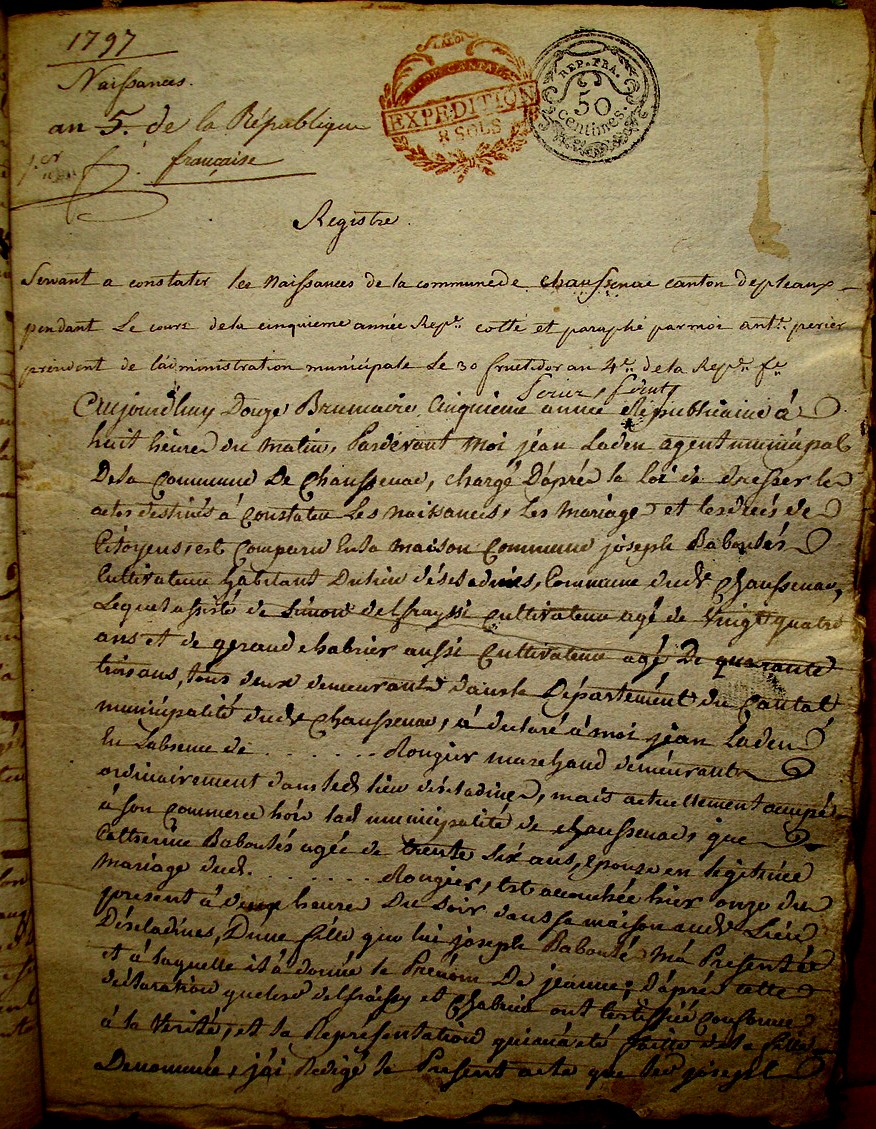 1797
Naissances.
an 5. de la République
1.er
française
LA LOI
DE CANTAL
EXPEDITION
8 SOLS
REP. FRA.
50
centimes.
Registre
Servant a constater les Naissances de la commune de chaussenac canton depleaux
pendant Le cours dela cinquieme année Repe. cotté et paraphé parmoi ant. perier
président de l'administration municipale Le 30 fructidor an 4e. de la Repe. fe
Aujourdhuy Douze Brumaire, Cinquieme année Républicaine à
huit heures du matin, Pardevant moi jean Laden agent municipal
Dela Commune De Chaussenac, chargé D'après la loi de dresser les
actes destinés à Constater Les naissances, Les Mariages et les décès des
Citoyens, est Comparu En la maison Commune joseph Baboutés
Cultivateur habitant Dulieu d'éseladines, Commune dudt Chaussenac,
Lequel assisté de Simon delfrayssi Cultivateur agé de Vingt quatre
ans et de geraud chabrier aussi Cultivateur agé De quarante
trois ans, tous deux demeurants dans le Département du Cantal
municipalité dudt Chaussenac, à déclaré à moi jean Laden
En Labsence de . . . . . . . Rougier marchand demeurant
ordinairement dans ledt lieu déseladines, mais actuellement occupé
à son Commerce hors ladt municipalité de chaussenac, que
Catherine Baboutés agée de trente Six ans, Epouse en légitime
Mariage dudt. . . . . . . . Rougier, Est accouchée hier onze du
présent à deux heures Du Soir dans sa maison audt Lieu
Déseladines, D'une fille que lui joseph Babouté Ma Presentée
et à laquelle il à donné le Prénom De jeanne; D'après cette
déclaration que lesd. delfraissy et Chabrier ont Certifiée Conforme
à la Vérité, et la Représentation qui m'a été faitte de la fille
Denommée, j'ai Redigé le Present acte que led joseph